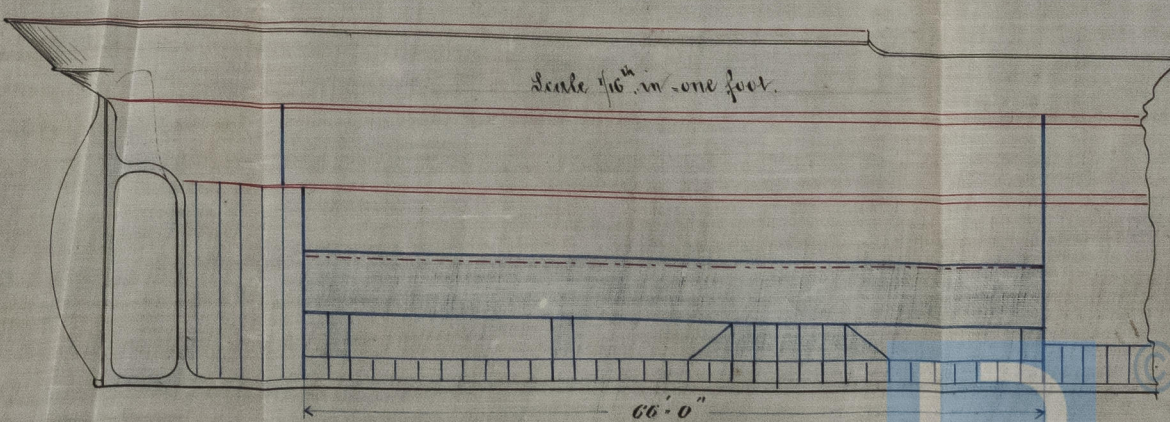 Scale 1/16th in = one foot.
66'-0"